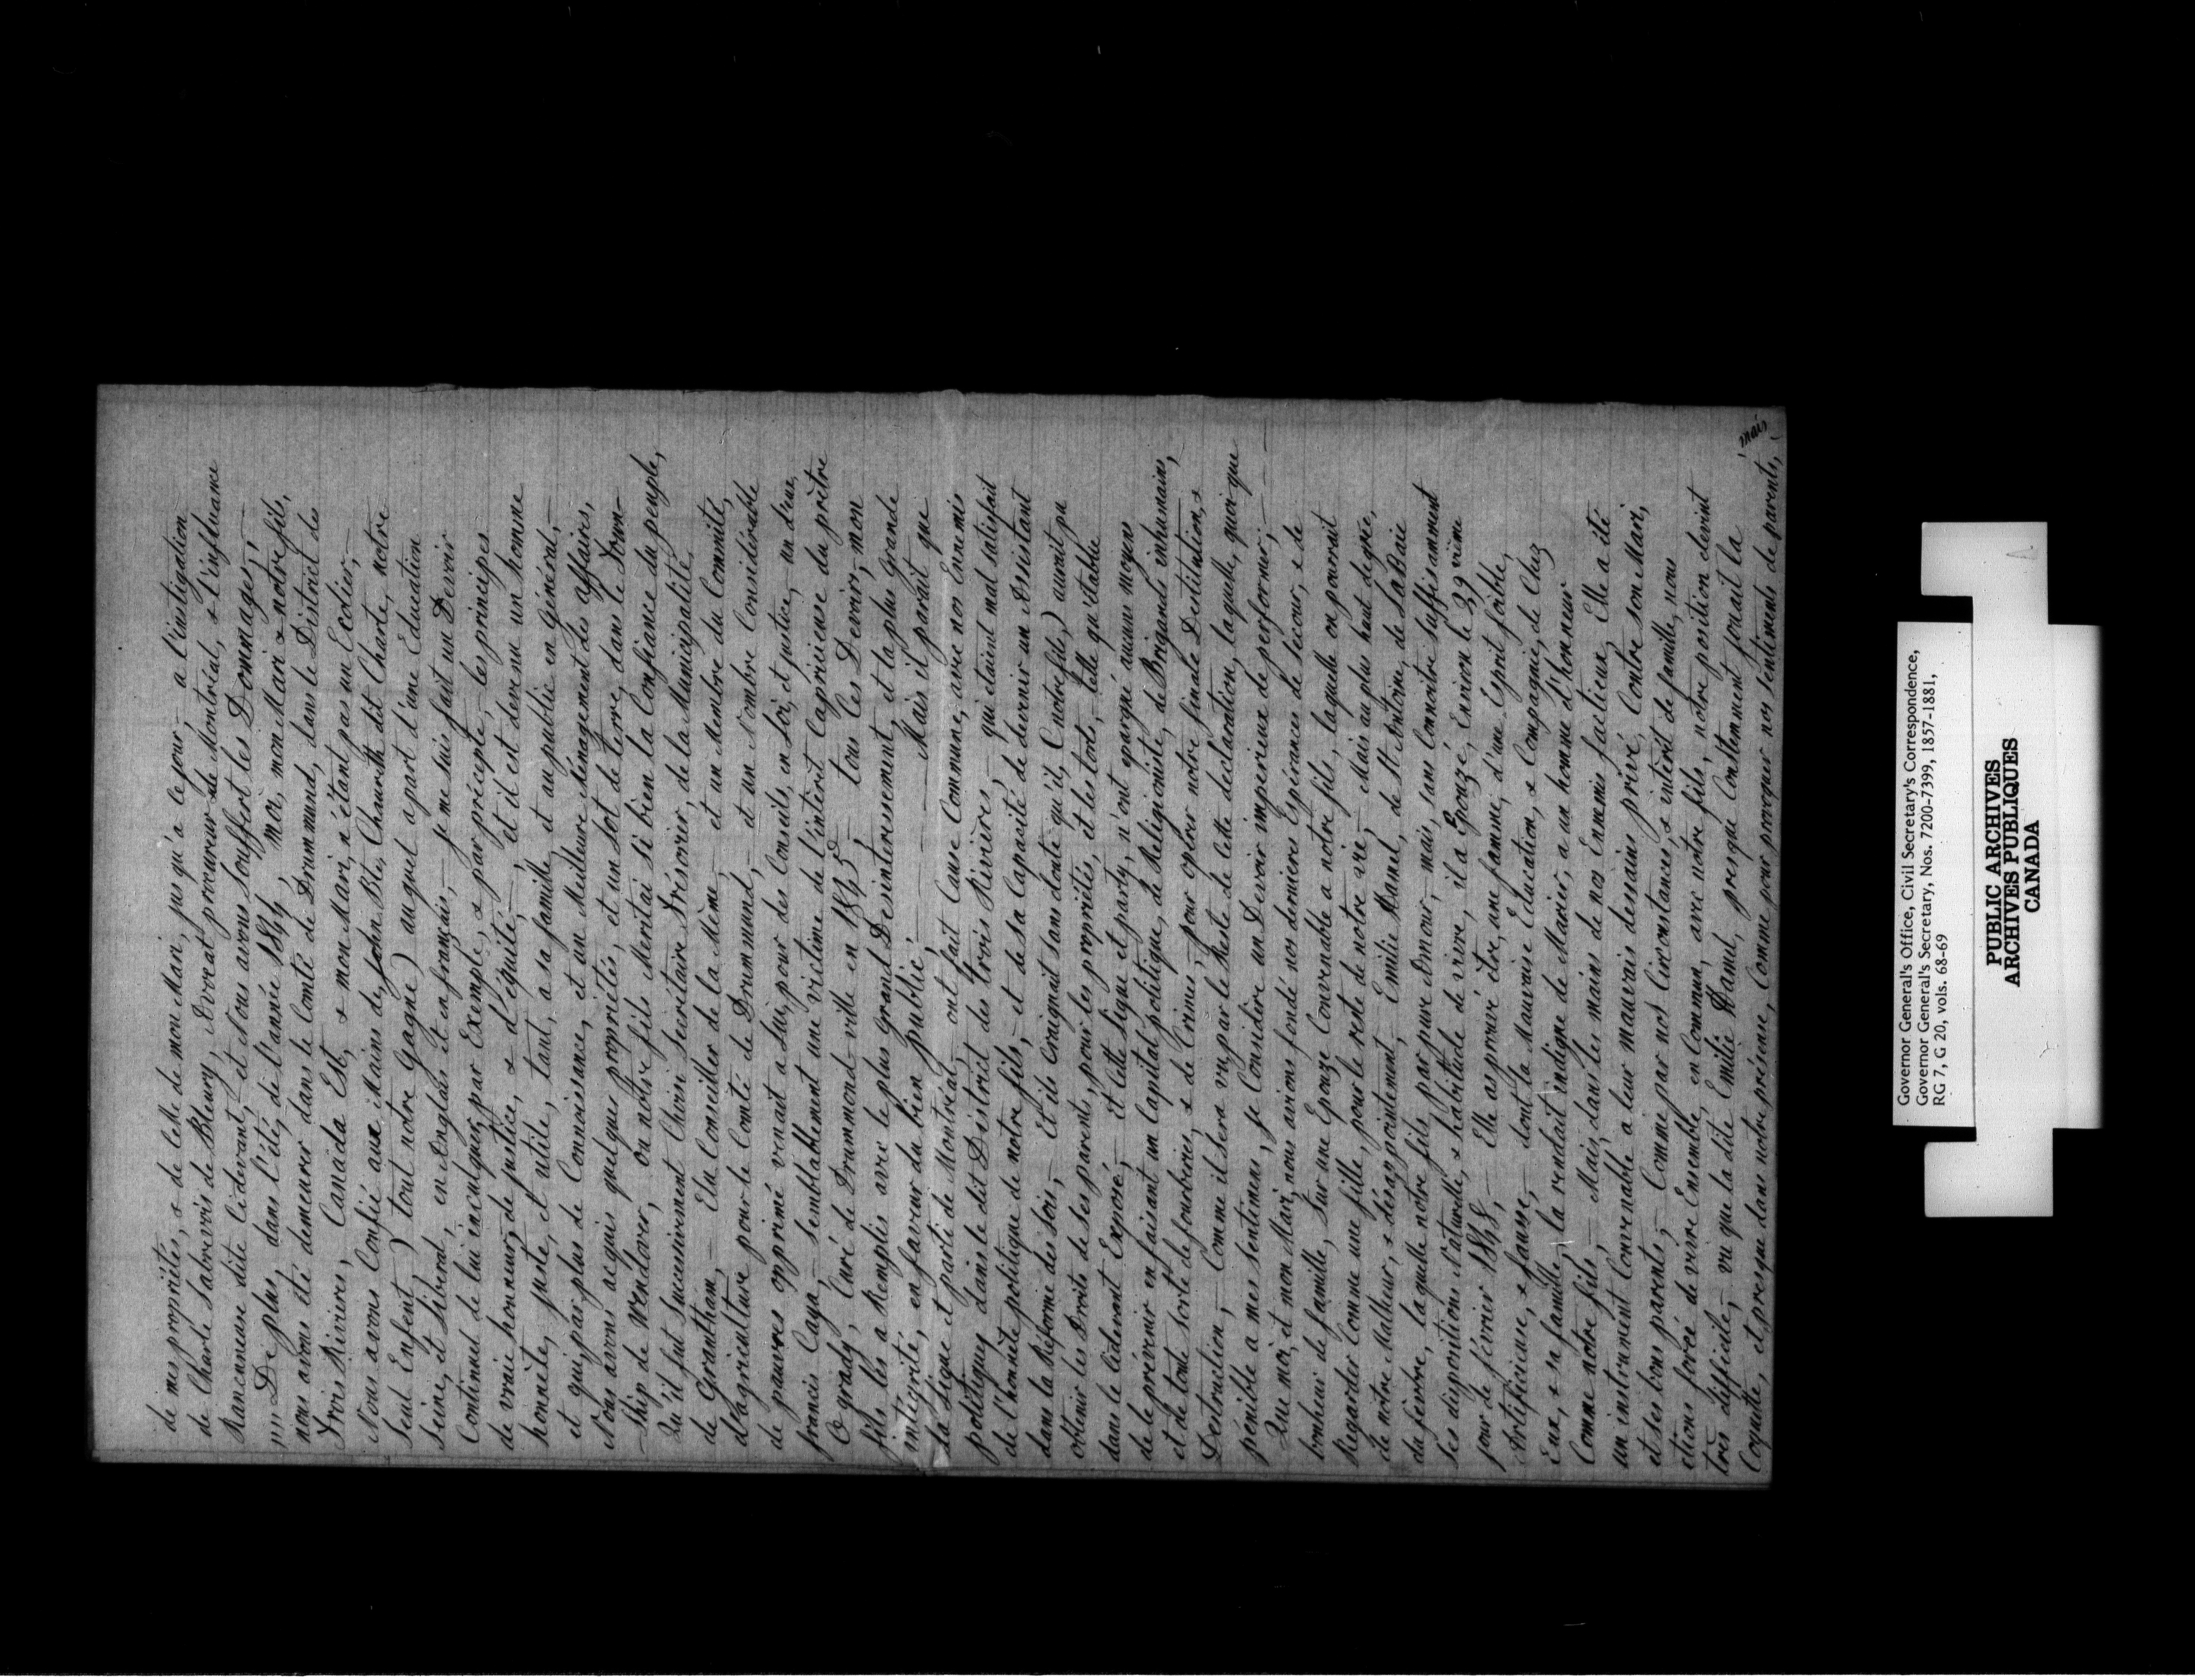 de mes propriétés, & de celle de mon Mari, jusqu'à ce jour, — a l'instigation
de Charle Sabrevois de Bleury, Avocat procureur de Montréal, & l'influance
Rancenneuse dite Cidevant, — et Nous avons souffert les Dommages, !
!!! De plus, dans l'été, de l'année 1844, moi, mon Mari & notre fils,
nous avons été demeurer dans le Comté de Drummund, dans le District des
Trois Rivieres, Canada Est, & mon Mari, n'étant pas un Ecolier, —
Nous avons Confié aux Mains de, John Bte. Chaurith dit Charte, notre
seul Enfent,) tout notre Gagne) auquel apart d'une Education
Seine, et Liberal, en Englais et en français, — je me suis fait un Devoir
Continuel de lui inculquer, par Exemple, & par précepte, — les principes
de vraie honneur, de justice, & d'équité; — et il est devenu un homme
honnête, juste, et utile, tant, a sa famille, et au public en Général, —
et qui par plus de Connoissance, et un Meilleure Ménagement des affairs,
Nous avons acquis quelques propriétés, et un Lot de terre, dans le Town-
-Ship de Wendover, ou notre fils Meritai si bien la Confiance du peuple,
Qu'il fut Successivement Choisi Secrétaire Trésorier, de la Municipalité
de Grantham, — Elu Conseiller de la Même, — et un Membre du Committé,
d'agriculture pour le Comté de Drummund, — et un Nombre Considérable
de pauvres opprimé venait a Lui, pour des Conseils, en Loi, et justice, — un d'eux,
francis Caya, — semblablement une victime de l'intérêt Capricieuse du prêtre
O'grady, Curé de Drummond-ville en 1845, — tous Ces Devoirs, — mon
fils les a Remplis avec le plus grand Desinteressement, et la plus Grande
integrité, en faveur du bien public; — Mais il parait que
La Ligue et parti de Montréal, — ont fait Cause Commune, avec nos Ennemis
politiques, dans le dit District des trois Rivières, — qui etaient mal satisfait
de l'honnête politique de notre fils, — et de sa Capacité de devenir un Assistant
dans la Réforme des Lois, — Et ils Craignait sans doute qu'il, (notre fils,) auroit pu
obtenir les Droits de ses parents, pour les propriétés, et les torts, — telle qu'établie
dans le Cidevant Exposé, — et Cette Ligue et party, n'ont epargné aucuns moyens
de le prévenir en faisant un Capital politique, de Religionisité, de Brigands inhumains,
et de toute sorte de fourberies, & de Crimes, — pour opérer notre finale Destitution, &
Destruction; — Comme il sera vu par le Reste de Cette déclaration, laquelle, quoi que
penible a mes sentimens, je Considère un Devoir imperieux de performer; —
Que moi, et mon Mari, nous avions fondé nos dernieres Espérances de secour, & de
bonheur de famille, Sur une Epouze Convenable a notre fils, laquelle on pourrait
Regarder Comme une fille, pour le reste de notre vie, — Mais au plus haut degré,
de notre Malheur, & désappointement, — Emilie Manel, de St Antoine, de LaBaie
du febvre, laquelle notre fils par pure Amour, mais, sans Connoitre suffisamment
Ses dispositions Naturelle, & habitude de vivre, il a Epouzé, Environ le 29 vième
jour de février 1848, — Elle as prouvé être, une famme, d'une Esprit foible,
Artificieuse, & fausse, — dont la Mauvaise Education, & Compagnie, de Chez
Eux, & sa famille, la rendait indigne de Marier, a un homme d'honneur
Comme notre fils, — Mais, dans les mains de nos Ennemis factieux, Elle a été
un instrument Convenable a leur mauvais dessains privé, Contre son Mari,
et ses bons parents; — Comme par nos Circonstances, & intérit de famille, nous
etions forcé de vivre Ensemble, en Commun, avec notre fils, notre position devint
très difficile, — vu que la dite Emilie Hamel, presque Constamment jouait la
Coquète, et presque dans notre présence, Comme pour provoquer nos sentiments de parents,
mais
Governor General's Office, Civil Secretary's Correspondence,
Governor General's Secretary, Nos. 7200-7399, 1857-1881,
RG 7, G 20, vols. 68-69
PUBLIC ARCHIVES
ARCHIVES PUBLIQUES
CANADA